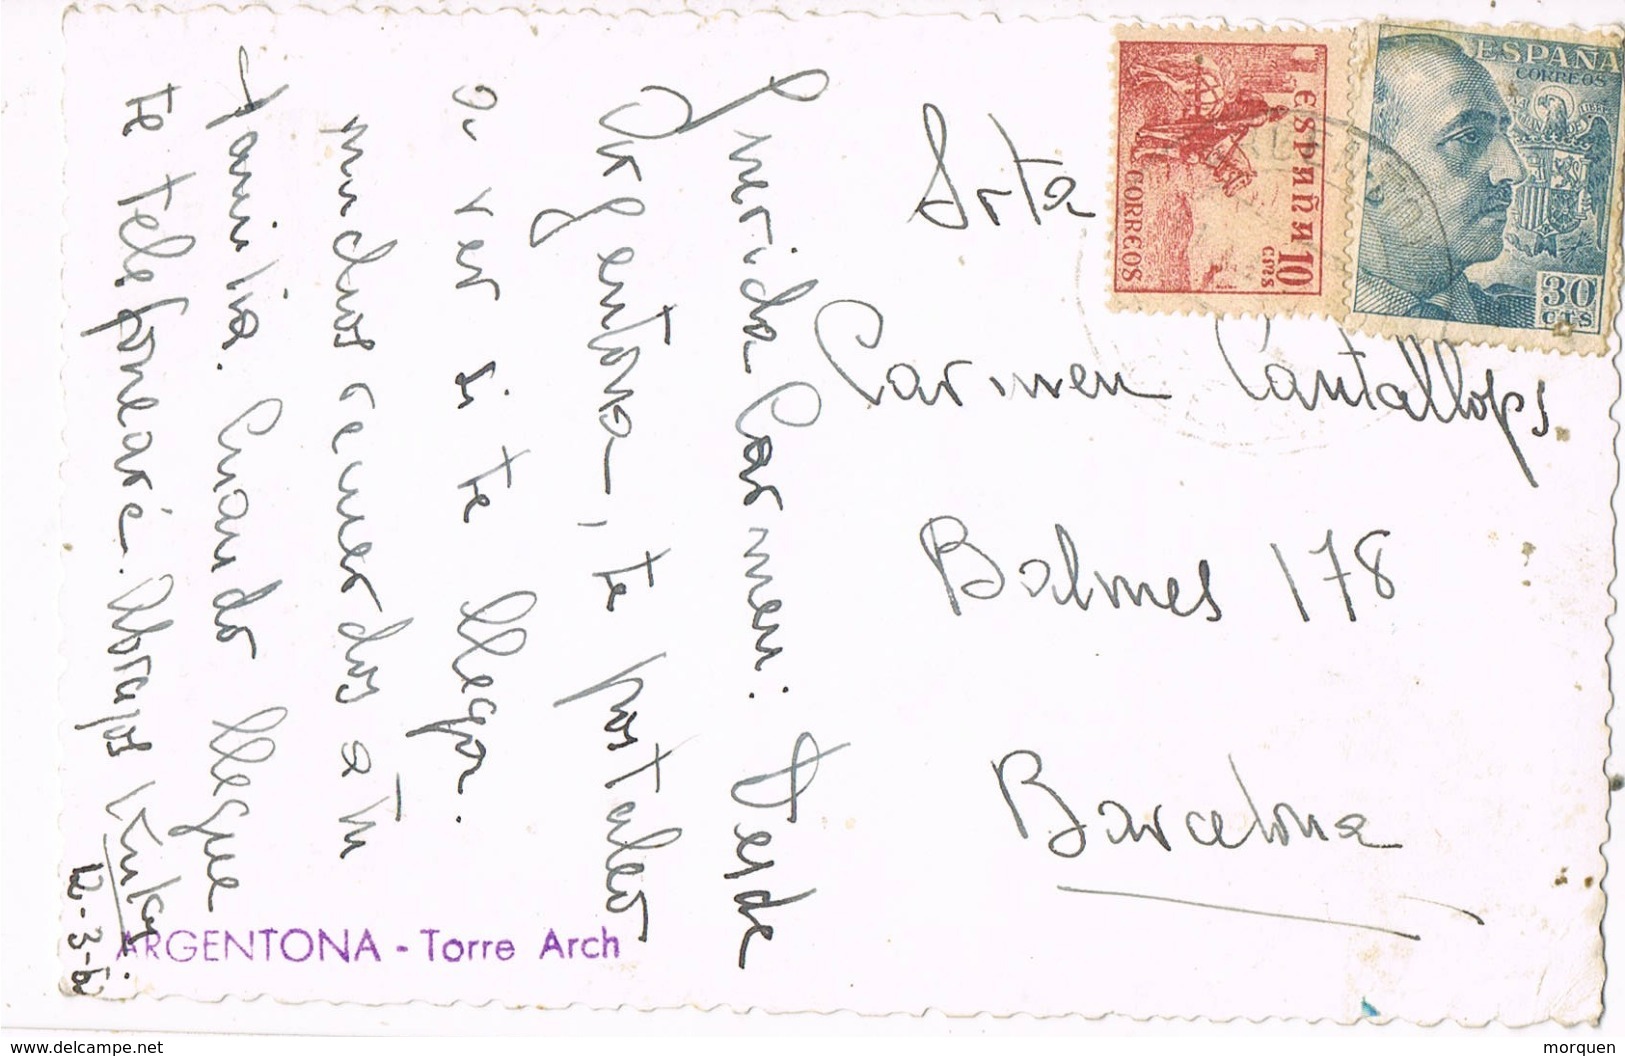 Querida Carmen: Desde
Argentona, te postaleo
a ver si te llega.
muchos recuerdos a tu
familia. Cuando llegue
te telefonearé. Abrazos
12-3-5
ARGENTONA - Torre Arch
Srta
Carmen Cantallops
Balmes 178
Barcelona
ESPAÑA
CORREOS
10
CTS
ESPAÑA
CORREOS
30
CTS
www.delcampe.net
morquen